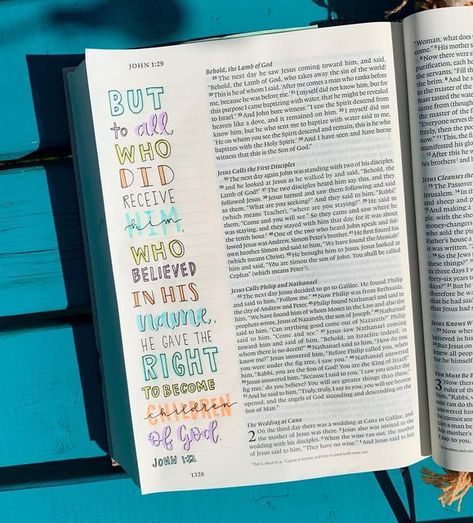 JOHN 1:29
BUT
to all
WHO
DID
RECEIVE
HIM,
WHO
BELIEVED
IN HIS
name,
HE GAVE THE
RIGHT
TO BECOME
CHILDREN
of God.
JOHN 1:12
1328
Behold, the Lamb of God
29 The next day he saw Jesus coming toward him, and said,
"Behold, the Lamb of God, who takes away the sin of the world!
30 This is he of whom I said, 'After me comes a man who ranks before
me, because he was before me.' 31 I myself did not know him, but for
this purpose I came baptizing with water, that he might be revealed
to Israel." 32 And John bore witness: "I saw the Spirit descend from
heaven like a dove, and it remained on him. 33 I myself did not
know him, but he who sent me to baptize with water said to me,
'He on whom you see the Spirit descend and remain, this is he who
baptizes with the Holy Spirit.' 34 And I have seen and have borne
witness that this is the Son of God."
Jesus Calls the First Disciples
35 The next day again John was standing with two of his disciples,
36 and he looked at Jesus as he walked by and said, "Behold, the
Lamb of God!" 37 The two disciples heard him say this, and they
followed Jesus. 38 Jesus turned and saw them following and said
to them, "What are you seeking?" And they said to him, "Rabbi"
(which means Teacher), "where are you staying?" 39 He said to
them, "Come and you will see." So they came and saw where he
was staying, and they stayed with him that day, for it was about
the tenth hour. 40 One of the two who heard John speak and fol-
lowed Jesus was Andrew, Simon Peter's brother. 41 He first found his
own brother Simon and said to him, "We have found the Messiah"
(which means Christ). 42 He brought him to Jesus. Jesus looked at
him and said, "You are Simon the son of John. You shall be called
Cephas" (which means Peter).
Jesus Calls Philip and Nathanael
43 The next day Jesus decided to go to Galilee. He found Philip
and said to him, "Follow me." 44 Now Philip was from Bethsaida,
the city of Andrew and Peter. 45 Philip found Nathanael and said to
him, "We have found him of whom Moses in the Law and also the
prophets wrote, Jesus of Nazareth, the son of Joseph." 46 Nathanael
said to him, "Can anything good come out of Nazareth?" Philip
said to him, "Come and see." 47 Jesus saw Nathanael coming
toward him and said of him, "Behold, an Israelite indeed, in
whom there is no deceit!" 48 Nathanael said to him, "How do you
know me?" Jesus answered him, "Before Philip called you, when
you were under the fig tree, I saw you." 49 Nathanael answered
him, "Rabbi, you are the Son of God! You are the King of Israel!"
50 Jesus answered him, "Because I said to you, 'I saw you under the
fig tree,' do you believe? You will see greater things than these."
51 And he said to him, "Truly, truly, I say to you, you will see heaven
opened, and the angels of God ascending and descending on the
Son of Man."
The Wedding at Cana
2 On the third day there was a wedding at Cana in Galilee, and
the mother of Jesus was there. 2 Jesus also was invited to the
wedding with his disciples. 3 When the wine ran out, the mother
of Jesus said to him, "They have no wine." 4 And Jesus said to her,
"Woman, what does
come." 5 His mother
6 Now there were s
purification, each h
the servants, "Fill
Jesus Cleanses the